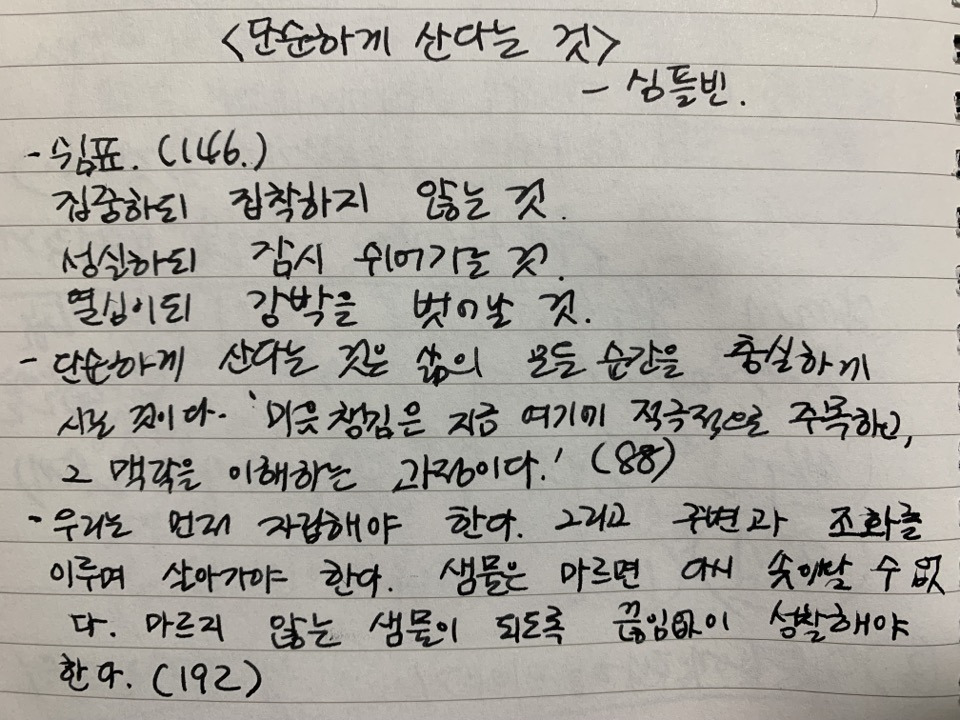 <단순하게 산다는 것>
- 심플빈.
- 쉼표. (146.)
집중하되 집착하지 않는 것.
성실하되 잠시 쉬어가는 것.
열심이되 강박을 벗어날 것.
- 단순하게 산다는 것은 삶의 모든 순간을 충실하게
사는 것이다. '마음챙김은 지금 여기에 적극적으로 주목하고,
그 맥락을 이해하는 과정이다.' (88)
- 우리는 먼저 자립해야 한다. 그리고 주변과 조화를
이루며 살아가야 한다. 샘물은 마르면 다시 솟아날 수 없
다. 마르지 않는 샘물이 되도록 끊임없이 성찰해야
한다. (192)